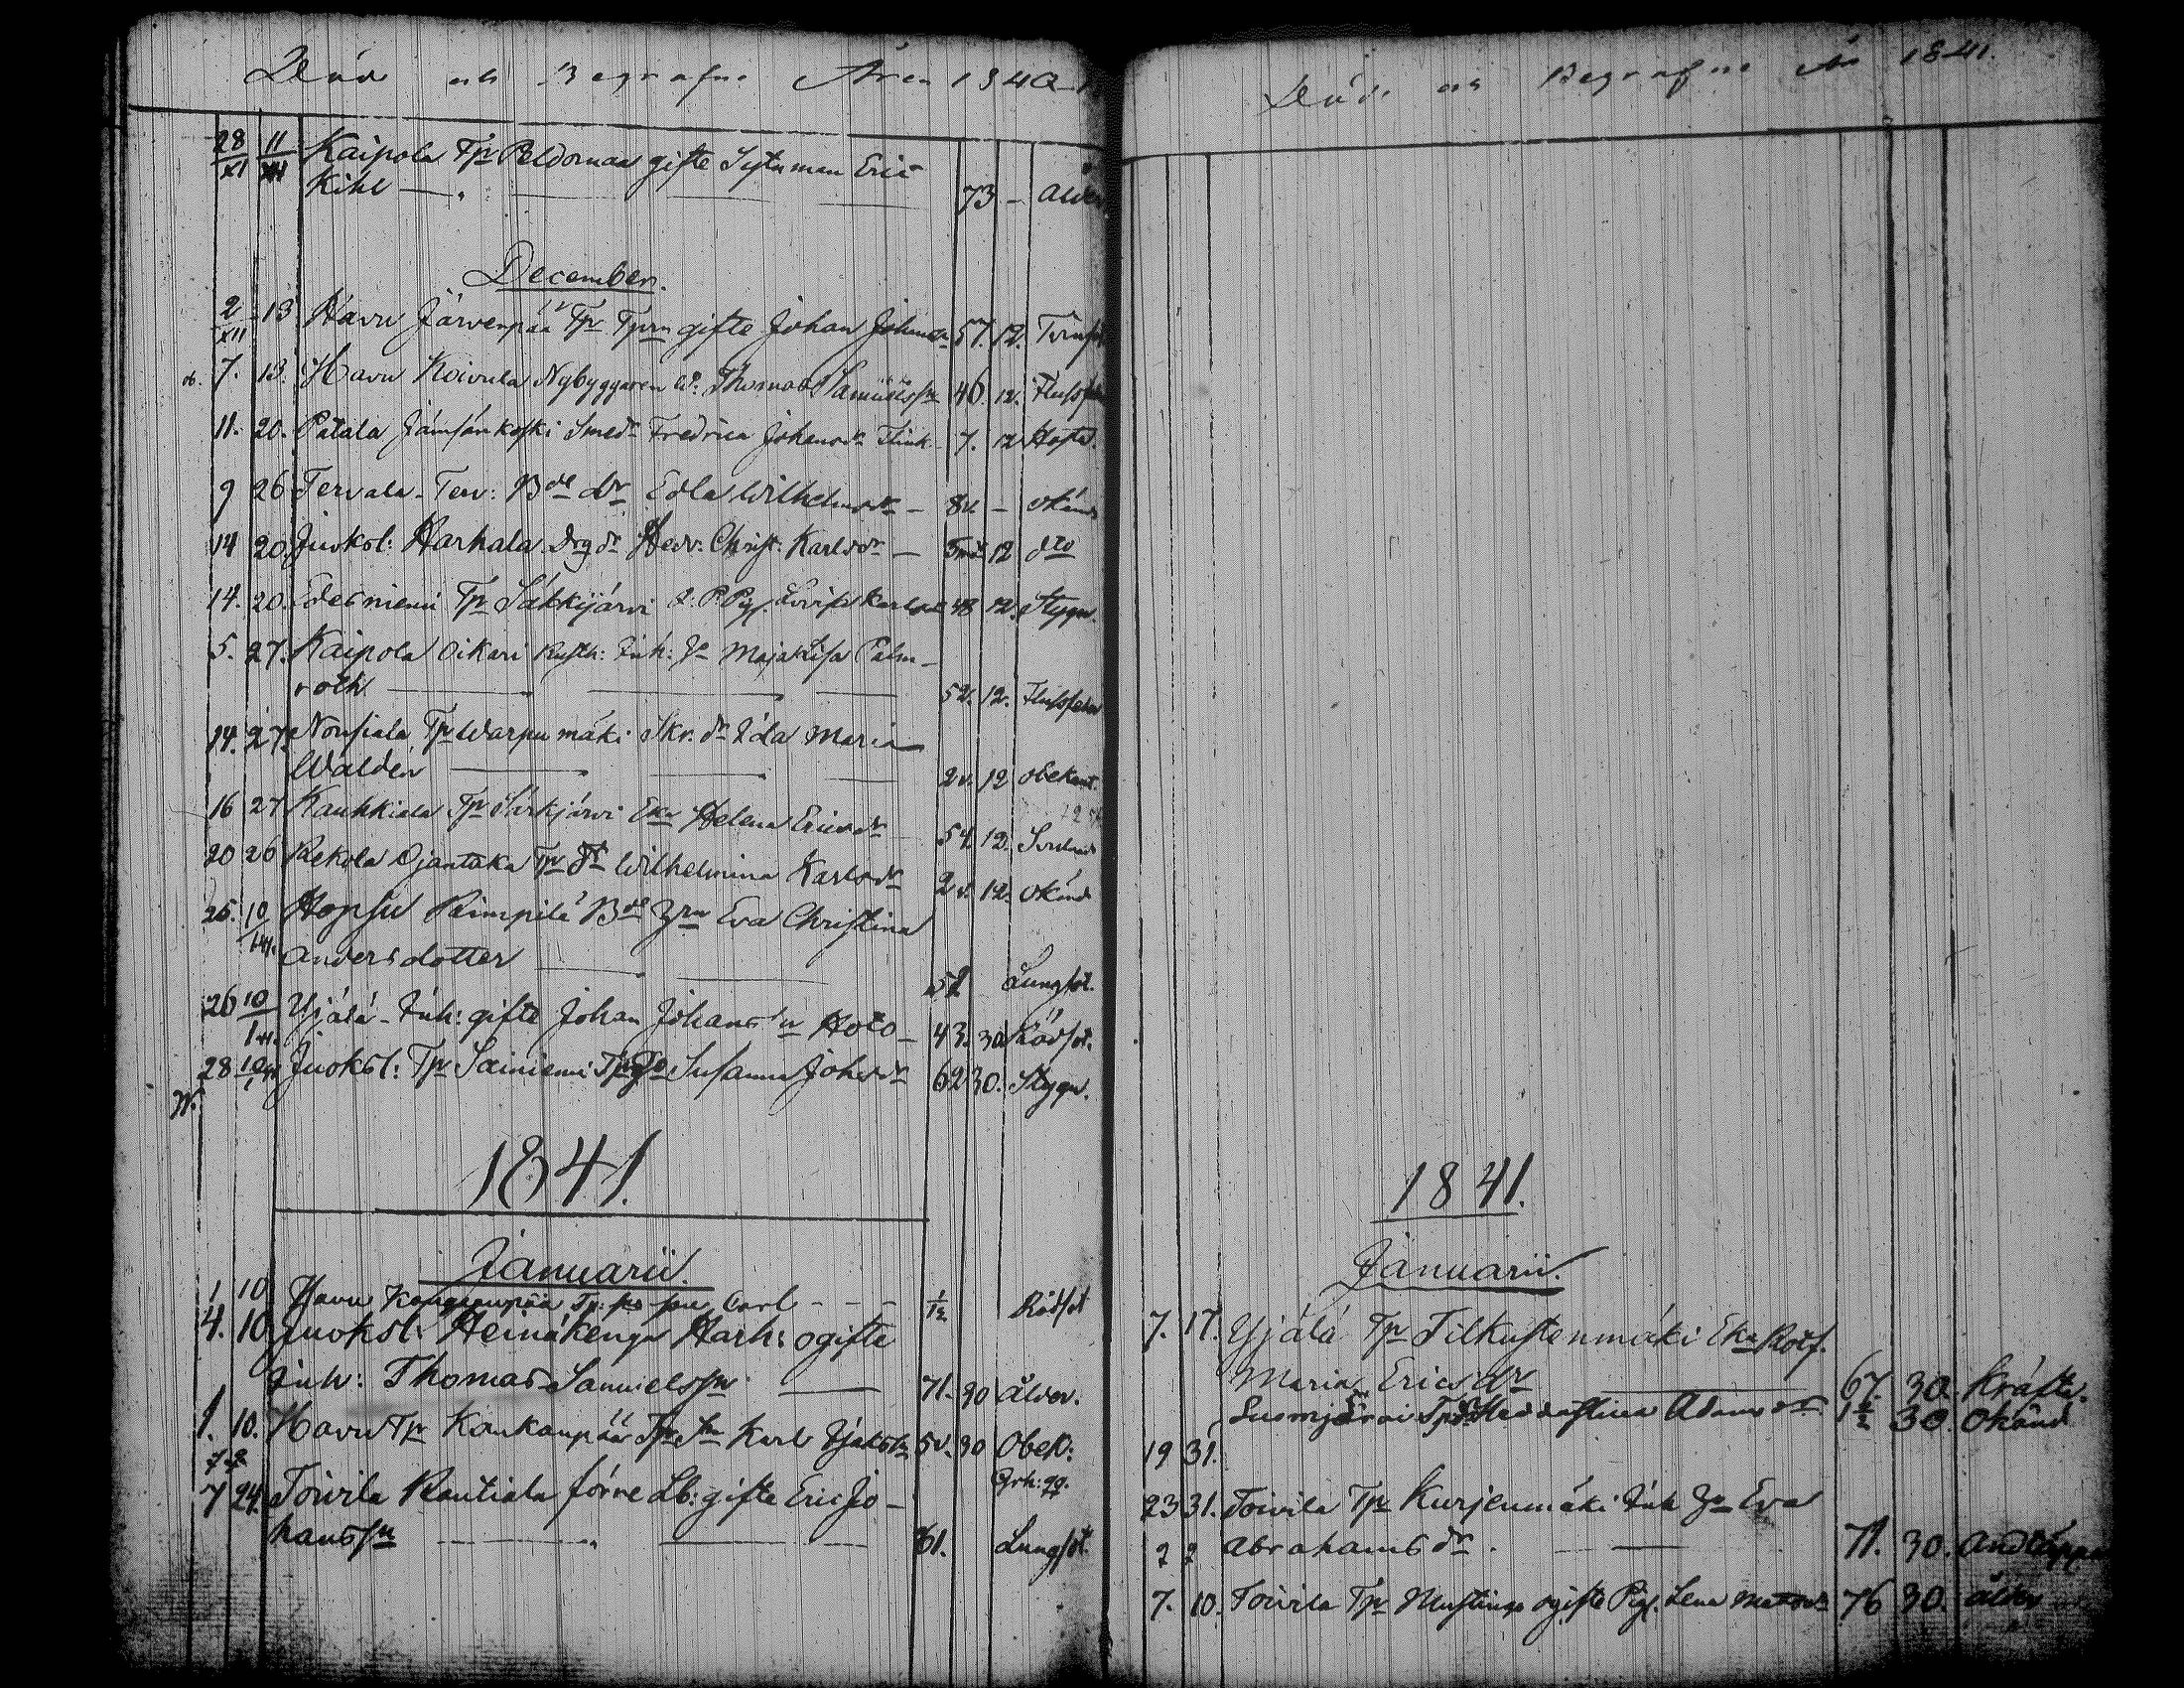 Döde och Begrafne Åren 1840-1
28/XI 11/XII Kaipola Tp Peldomaa gifte Sytn man Eric
Kihl — " — 73 – Ålder
December.
2/XII 13 Havu Järvenpää Tp Tprn gifte Johan Johanss 57. 12.
7. 13. Havu Koivula Nybyggaren Thomas Samuelssn 40. 12. Flussfeber
11. 20. Patala Jämsänkoski Smeds Fredrica Johansdr Flink 7. 12 Hosta.
9 26 Tervala Terv: Bde dr Edla Wilhelmsdr — 8v. – okänd
14 20. Juoksl: Harhala Drg dr Hedv: Christ: Karlsdr — 5 12 dto
14. 20. Edesniemi Tp Säkkijärvi Pig. Lovisa Karlsdr 48 12. Stygn.
5. 27. Kaipola Oikari Rusth: Inh: Maja Lisa Palm-
roth — 52. 12. Flussfeber
14. 27. Nousiala Tp Warpumäki Skr. dr Ida Maria
Waldén — 2v. 12 obekant.
16 27 Kauhkiala Tp Särkjärvi Eka Helena Ericsdr 54. 12.
20 26 Rekola Ojantaka Tp dr Wilhelmina Karlsdr 2v. 12. okänd
25. 10/1 41. Hopsu Rimpilä Bde Eva Christina
Andersdotter — 52 Lungsot.
26 10/1 41. Yijälä Inh: gifte Johan Johanss'n Hoto – 43. 30. Rödsot.
28 10/1 41 Juoksl: Tp Sainiemi Susanna Johsdr 62 30. Stygn.
1841.
Januarii.
1 10 Havu Konganpää Tp: son Carl - - - 1/12 Rödsot
4. 10 Juoksl: Heinäkenga Harh: ogifte
Inh: Thomas Samuelssn — 71. 30 Ålder.
1. 10. Havu Tp Koukanpää Tp Sn Karl 5v. 30 Obek:
7 24. Toivila Rautiala förre Lb: gifte Eric Jo-
hanssn — " — 61. Lungsot.
Döde och Begrafne År 1841.
1841.
Januarii.
7. 17. Yijälä Tp Tilkustenmäki Eka Rotf.
Maria Ericsdr — 67. 30. Kräfta.
Suomjärvi Tp Hedda Stina Adamsdr 1 1/2 30. Okänd
19 31.
23 31. Toivila Tp Kurjenmäki Inh Eva
Abrahamsdr. — 71. 30. Andtäppa
7. 10. Toivila Tp Mustinga ogifte Pig. Lena Matsdr 76 30. ålder